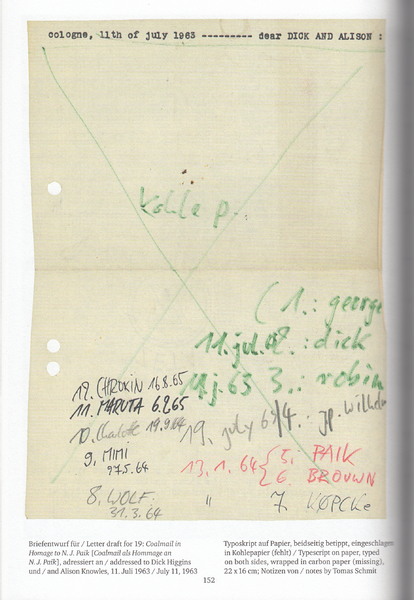 cologne, 11th of july 1963 --------- dear DICK AND ALISON :
Kohle p.
( 1.: george
11. jul. 2.: dick
11. j. 63 3.: robin
12. CHRUKIN 16.8.65
11. MARUTA 6.2.65
10. Charlotte 19.9.64
19. july 63/4.: jp. Wilhelm
9. MIMI
27.5.64
13. 1. 64 { 5. PAIK
6. BROUWN
8. WOLF.
31.3.64
" 7. KØPCKE
Briefentwurf für / Letter draft for 19: Coalmail in
Homage to N. J. Paik [Coalmail als Hommage an
N. J. Paik], adressiert an / addressed to Dick Higgins
und / and Alison Knowles, 11. Juli 1963 / July 11, 1963
Typoskript auf Papier, beidseitig betippt, eingeschlagen
in Kohlepapier (fehlt) / Typescript on paper, typed
on both sides, wrapped in carbon paper (missing),
22 x 16 cm; Notizen von / notes by Tomas Schmit
152